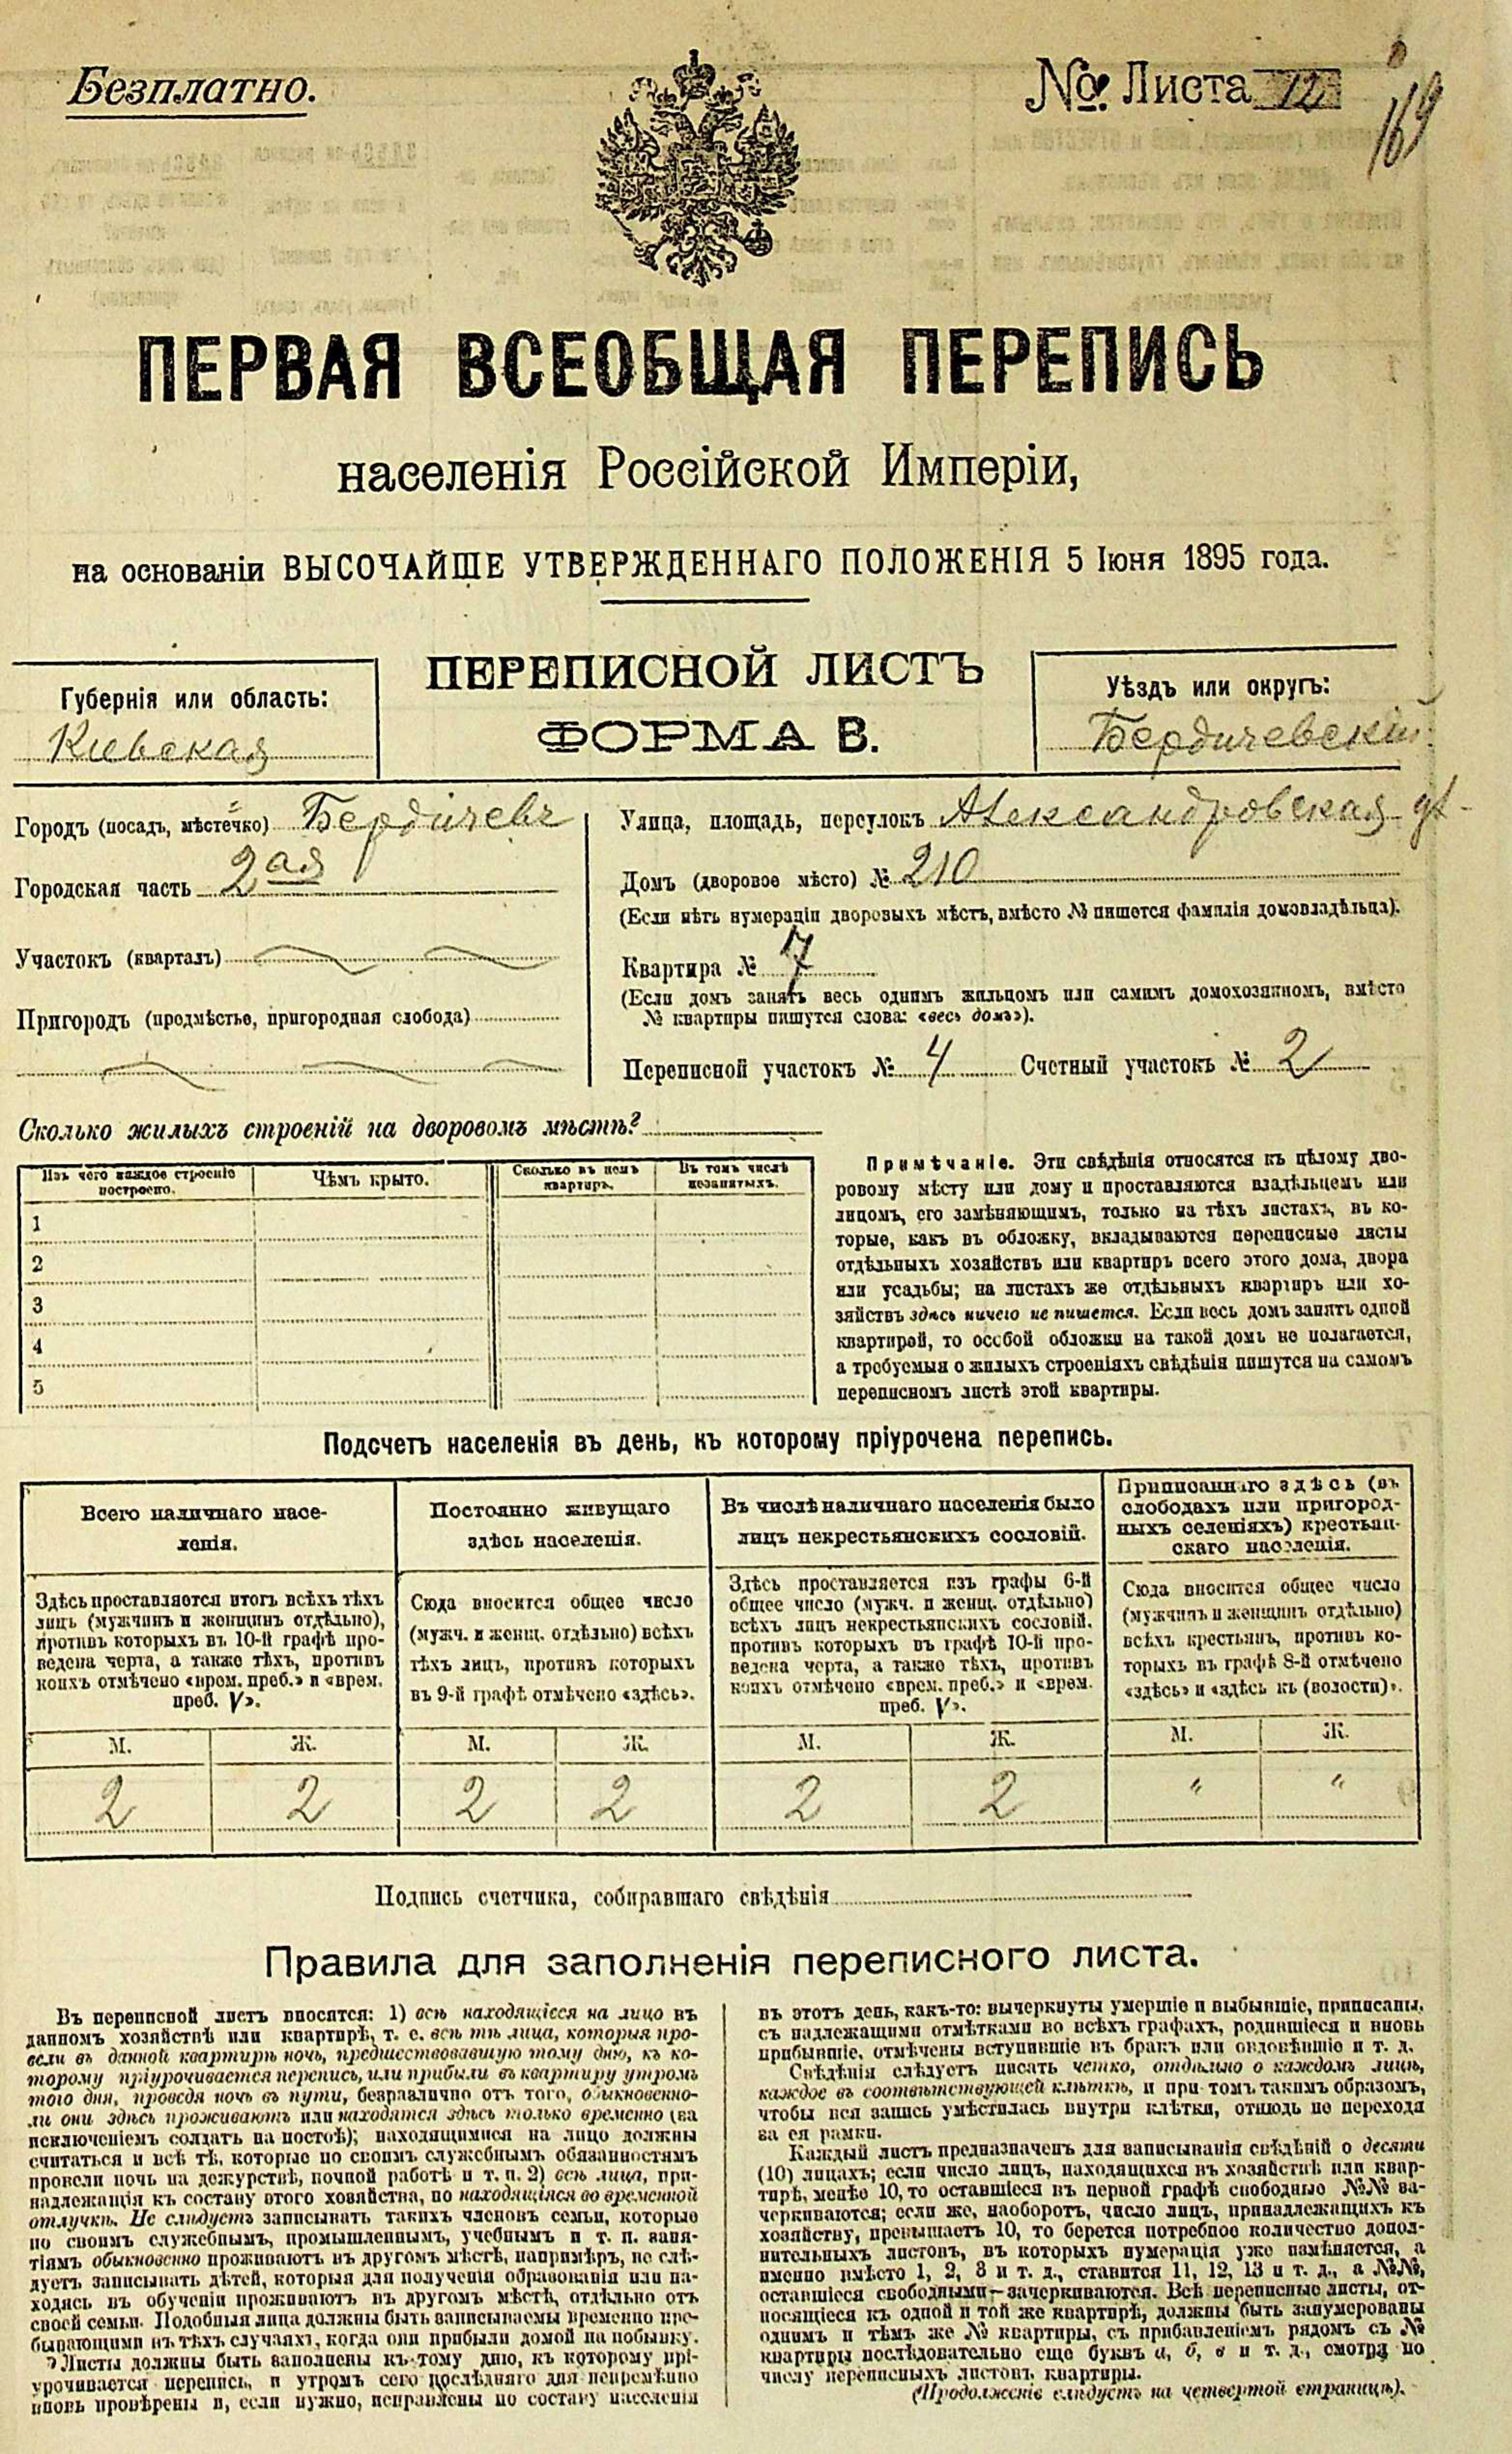 Безплатно.
№ Листа 12
169
ПЕРВАЯ ВСЕОБЩАЯ ПЕРЕПИСЬ
населенія Россійской Имперіи,
на основаніи ВЫСОЧАЙШЕ УТВЕРЖДЕННАГО ПОЛОЖЕНІЯ 5 Іюня 1895 года.
ПЕРЕПИСНОЙ ЛИСТЪ
ФОРМА В.
Губернія или область:
Кіевская
Уѣздъ или округъ:
Бердичевскій
Городъ (посадъ, мѣстечко) Бердичевъ
Городская часть 2ая
Участокъ (кварталъ)
Пригородъ (предмѣстье, пригородная слобода)
Улица, площадь, переулокъ Александровская ул.
Домъ (дворовое мѣсто) № 210
(Если нѣтъ нумераціи дворовыхъ мѣстъ, вмѣсто № пишется фамилія домовладѣльца).
Квартира № 7
(Если домъ занятъ весь однимъ жильцомъ или самимъ домохозяиномъ, вмѣсто
№ квартиры пишутся слова: «весь домъ»).
Переписной участокъ № 4 Счетный участокъ № 2
Сколько жилыхъ строеній на дворовомъ мѣстѣ?
Изъ чего каждое строеніе
построено.
Чѣмъ крыто.
Сколько въ немъ
квартиръ.
Въ томъ числѣ
незанятыхъ.
1
2
3
4
5
Примѣчаніе. Эти свѣдѣнія относятся къ цѣлому дво-
ровому мѣсту или дому и проставляются владѣльцемъ или
лицомъ, его замѣняющимъ, только на тѣхъ листахъ, въ ко-
торые, какъ въ обложку, вкладываются переписные листы
отдѣльныхъ хозяйствъ или квартиръ всего этого дома, двора
или усадьбы; на листахъ же отдѣльныхъ квартиръ или хо-
зяйствъ здѣсь ничего не пишется. Если весь домъ занятъ одной
квартирой, то особой обложки на такой домъ не полагается,
а требуемыя о жилыхъ строеніяхъ свѣдѣнія пишутся на самомъ
переписномъ листѣ этой квартиры.
Подсчетъ населенія въ день, къ которому пріурочена перепись.
Всего наличнаго насе-
ленія.
Здѣсь проставляется итогъ всѣхъ тѣхъ
лицъ (мужчинъ и женщинъ отдѣльно),
противъ которыхъ въ 10-й графѣ про-
ведена черта, а также тѣхъ, противъ
коихъ отмѣчено «врем. преб.» и «врем.
преб. V».
Постоянно живущаго
здѣсь населенія.
Сюда вносится общее число
(мужч. и женщ. отдѣльно) всѣхъ
тѣхъ лицъ, противъ которыхъ
въ 9-й графѣ отмѣчено «здѣсь».
Въ числѣ наличнаго населенія было
лицъ некрестьянскихъ сословій.
Здѣсь проставляется изъ графы 6-й
общее число (мужч. и женщ. отдѣльно)
всѣхъ лицъ некрестьянскихъ сословій,
противъ которыхъ въ графѣ 10-й про-
ведена черта, а также тѣхъ, противъ
коихъ отмѣчено «врем. преб.» и «врем.
преб. V».
Приписаннаго здѣсь (въ
слободахъ или пригород-
ныхъ селеніяхъ) крестьян-
скаго населенія.
Сюда вносится общее число
(мужчинъ и женщинъ отдѣльно)
всѣхъ крестьянъ, противъ ко-
торыхъ въ графѣ 8-й отмѣчено
«здѣсь» и «здѣсь къ (волости)».
М. Ж. М. Ж. М. Ж. М. Ж.
2 2 2 2 2 2 " "
Подпись счетчика, собиравшаго свѣдѣнія
Правила для заполненія переписного листа.
Въ переписной листъ вносятся: 1) всѣ находящіеся на лицо въ
данномъ хозяйствѣ или квартирѣ, т. е. всѣ тѣ лица, которыя про-
вели въ данной квартирѣ ночь, предшествовавшую тому дню, къ ко-
торому пріурочивается перепись, или прибыли въ квартиру утромъ
того дня, проведя ночь въ пути, безразлично отъ того, обыкновенно-
ли они здѣсь проживаютъ или находятся здѣсь только временно (за
исключеніемъ солдатъ на постоѣ); находящимися на лицо должны
считаться и всѣ тѣ, которые по своимъ служебнымъ обязанностямъ
провели ночь на дежурствѣ, ночной работѣ и т. п. 2) всѣ лица, при-
надлежащія къ составу этого хозяйства, но находящіяся во временной
отлучкѣ. Не слѣдуетъ записывать такихъ членовъ семьи, которые
по своимъ служебнымъ, промышленнымъ, учебнымъ и т. п. заня-
тіямъ обыкновенно проживаютъ въ другомъ мѣстѣ, напримѣръ, не слѣ-
дуетъ записывать дѣтей, которыя для полученія образованія или на-
ходясь въ обученіи проживаютъ въ другомъ мѣстѣ, отдѣльно отъ
своей семьи. Подобныя лица должны быть записываемы временно пре-
бывающими въ тѣхъ случаяхъ, когда они прибыли домой на побывку.
Листы должны быть заполнены къ тому дню, къ которому прі-
урочивается перепись, и утромъ сего послѣдняго дня непремѣнно
вновь провѣрены и, если нужно, исправлены по составу населенія
въ этотъ день, какъ-то: вычеркнуты умершіе и выбывшіе, приписаны,
съ надлежащими отмѣтками во всѣхъ графахъ, родившіеся и вновь
прибывшіе, отмѣчены вступившіе въ бракъ или овдовѣвшіе и т. д.
Свѣдѣнія слѣдуетъ писать четко, отдѣльно о каждомъ лицѣ,
каждое въ соотвѣтствующей клѣткѣ, и при томъ такимъ образомъ,
чтобы вся запись умѣстилась внутри клѣтки, отнюдь не переходя
за ея рамки.
Каждый листъ предназначенъ для записыванія свѣдѣній о десяти
(10) лицахъ; если число лицъ, находящихся въ хозяйствѣ или квар-
тирѣ, менѣе 10, то оставшіеся въ первой графѣ свободные №№ за-
черкиваются; если же, наоборотъ, число лицъ, принадлежащихъ къ
хозяйству, превышаетъ 10, то берется потребное количество допол-
нительныхъ листовъ, въ которыхъ нумерація уже измѣняется, а
именно вмѣсто 1, 2, 3 и т. д., ставится 11, 12, 13 и т. д., а №№,
оставшіеся свободными—зачеркиваются. Всѣ переписные листы, от-
носящіеся къ одной и той же квартирѣ, должны быть занумерованы
однимъ и тѣмъ же № квартиры, съ прибавленіемъ рядомъ съ №
квартиры послѣдовательно еще буквъ а, б, в и т. д., смотря по
числу переписныхъ листовъ квартиры.
(Продолженіе слѣдуетъ на четвертой страницѣ).